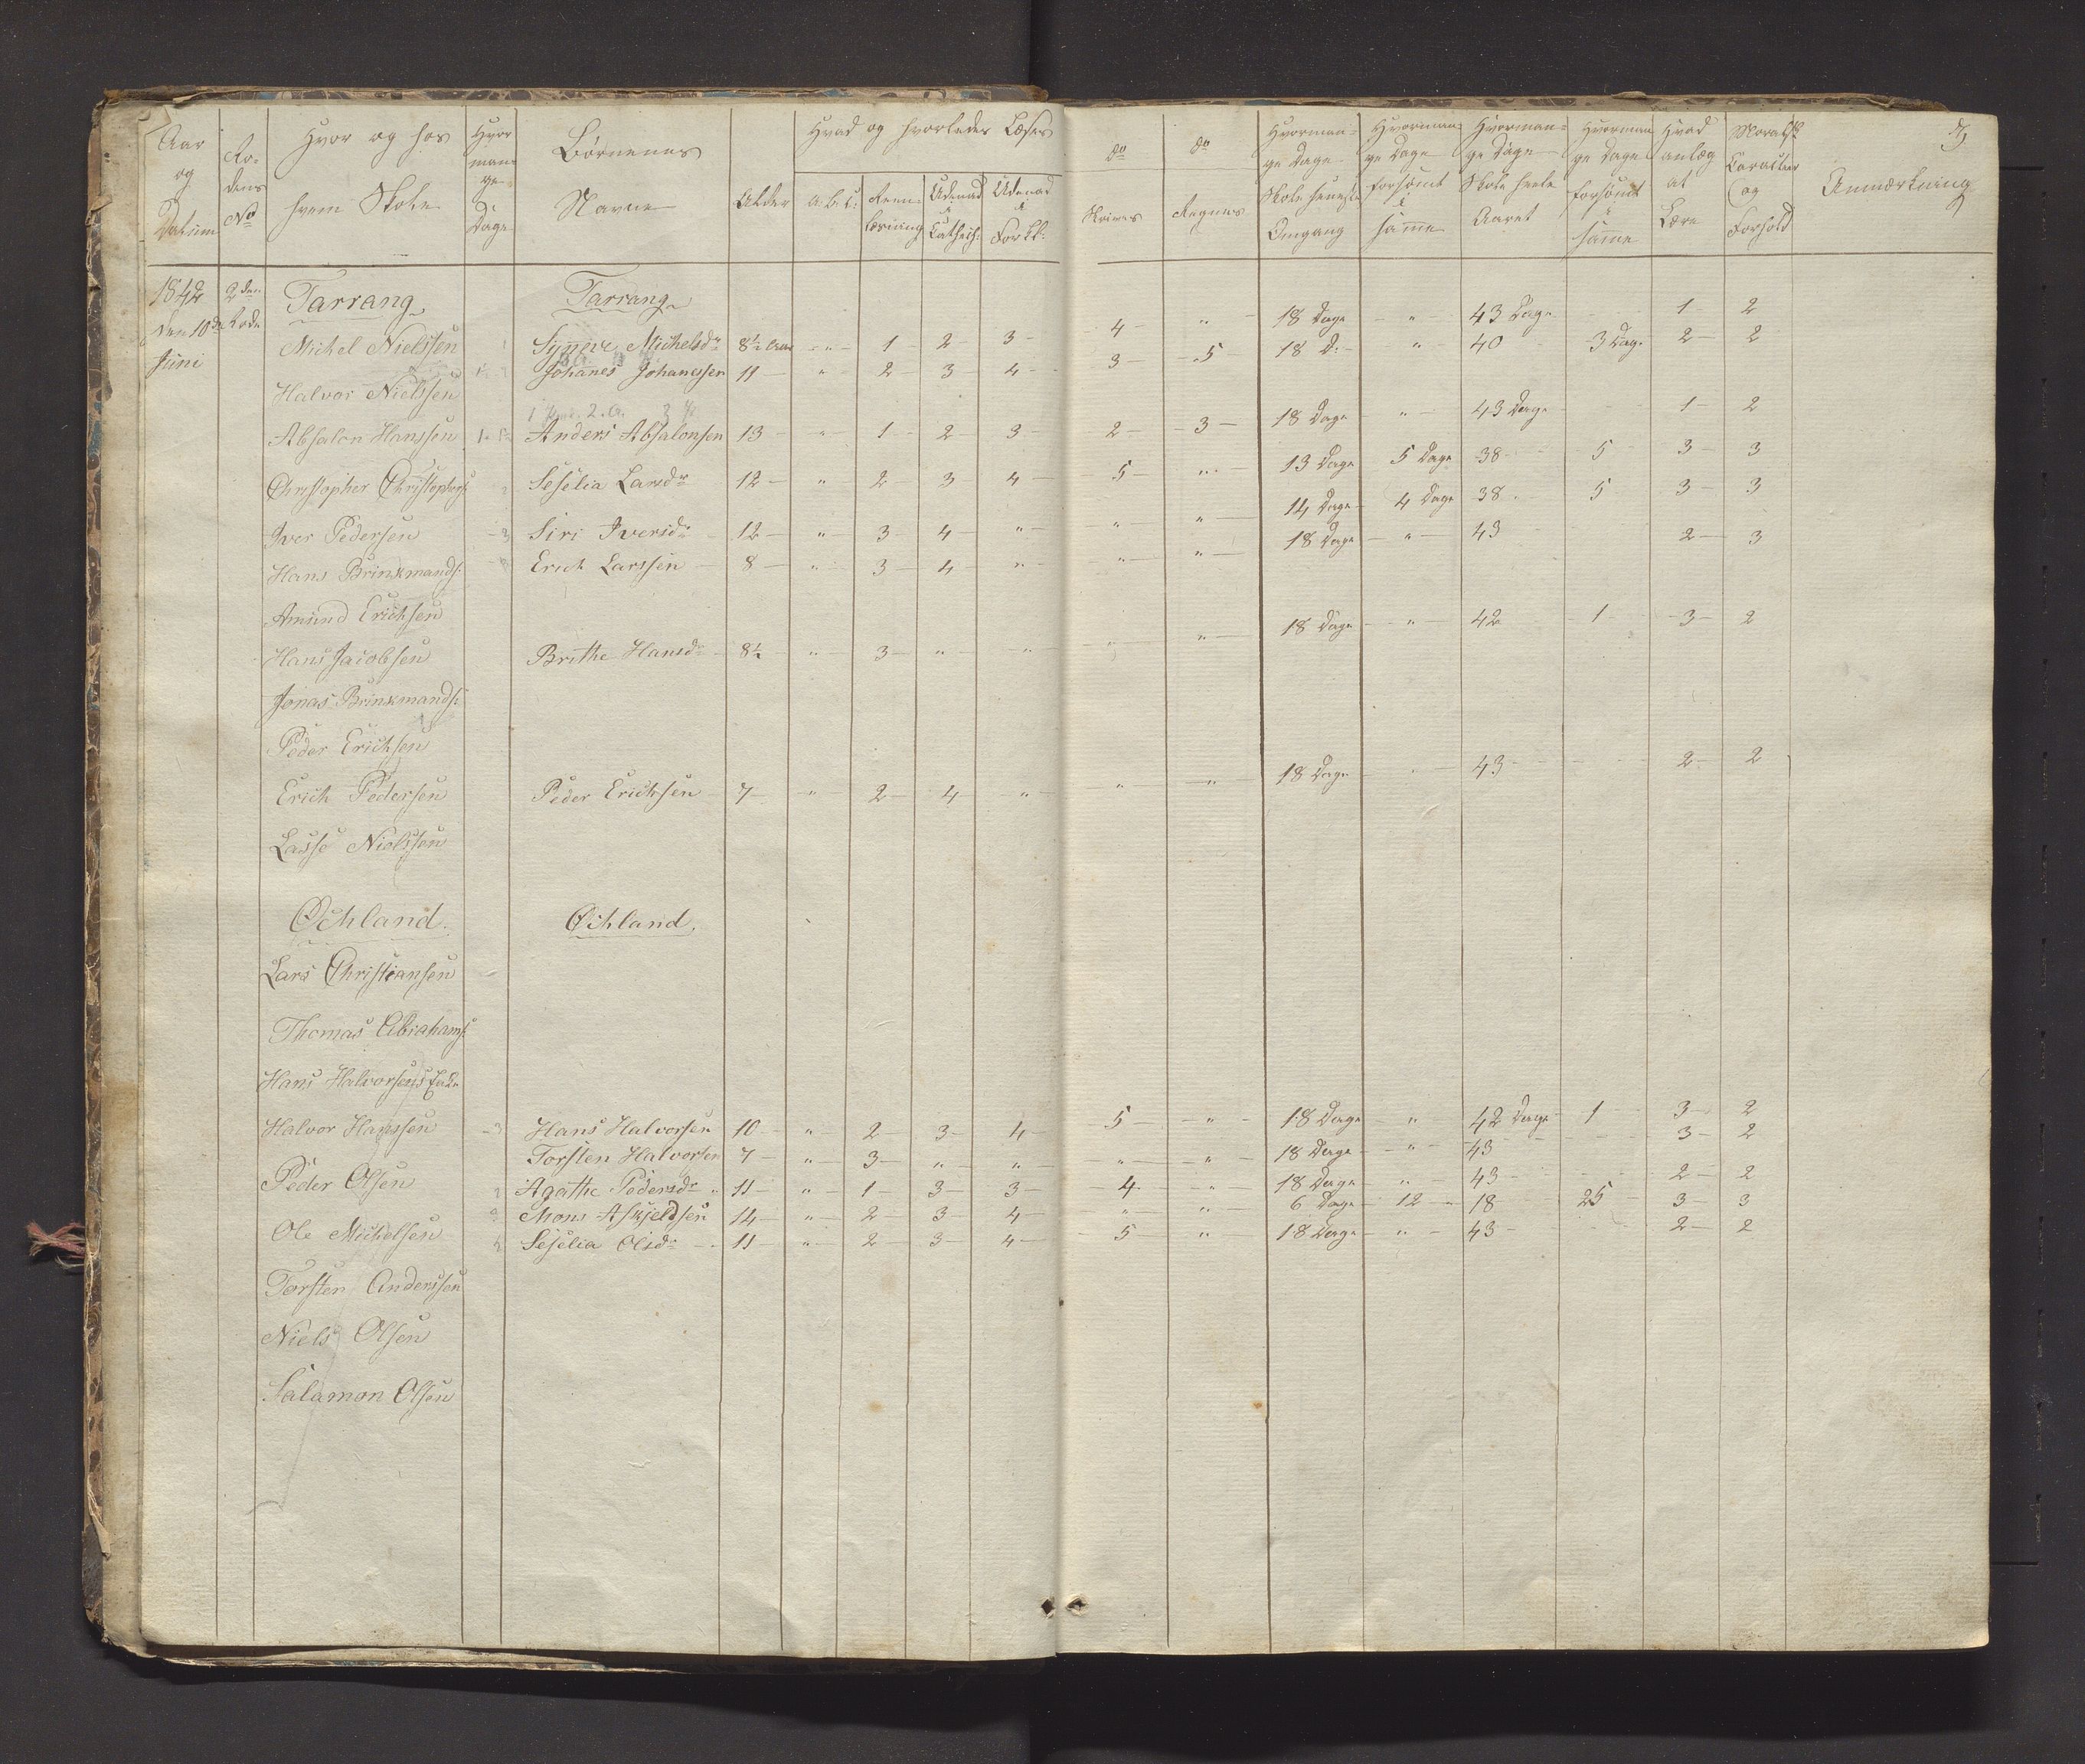 Aar og Datum | Rodens No | Hvor og hos hvem Skole | Hvormange Dage | Børnenes Navne | Alder | Hvad og hvorledes Læses | do Skrives | do Regnes | Hvormange Dage Skole seneste Omgang | Hvormange Dage forsømt i samme | Hvormange Dage Skole heele Aaret | Hvormange Dage forsømt i samme | Hvad anlæg at Lære | Moralsk Caracteer og Forhold | Anmærkning
A.b.c. | Reen-læsning | Udenad i Cathech: | Udenad i Forkl:
1842 2den Tarrang Tarrang
den 10de Rode Michel Nielssen Synnive Michelsdr 8½ Aar " 1 2 3 4 " 18 Dage " 43 Dage 1 2
Juni Johanes Johanessen 11 " 2 3 4 3 5 18 D: " 40 3 Dag. 2 2
Halvor Nielssen
Absalon Hanssen Anders Absalonsen 13 " 1 2 3 2 3 18 Dage " 43 Dage 1 2
Christopher Christophers: Seselia Larsdr 12 " 2 3 4 5 " 13 Dage 5 Dage 38 5 3 3
Iver Pedersen 3 Siri Iversdr 12 " 3 4 " " " 14 Dage 4 Dage 38 5 3 3
Hans Brinkmands: Erich Larssen 8 " 3 4 " " " 18 Dage " 43 2 3
Amund Erichsen
Hans Jacobsen Brithe Hansdr 8½ " 3 " " " " 18 Dage " 42 1 3 2
Jonas Brinkmands:
Peder Erichsen
Erich Pedersen Peder Erichsen 7 " 2 4 " " " 18 Dage " 43 2 2
Lasse Nielssen
Øchland. Øchland.
Lars Christiansen
Thomas Abrahams:
Hans Halvorsens Enke
Halvor Hanssen 3 Hans Halvorsen 10 " 2 3 4 5 " 18 Dage " 42 Dage 1 3 2
Torsten Halvorsen 7 " 3 " " " " 18 Dage " 43 3 2
Peder Olsen Agathe Pedersdr 11 " 1 3 3 4 " 18 Dage " 43 2 2
Mons Askjeldsen 14 " 2 3 4 " " 6 Dage 12 18 25 3 3
Ole Michelsen Seselia Olsdr 11 " 2 3 4 5 " 18 Dage " 43 2 2
Torsten Anderssen
Niels Olsen
Salamon Olsen